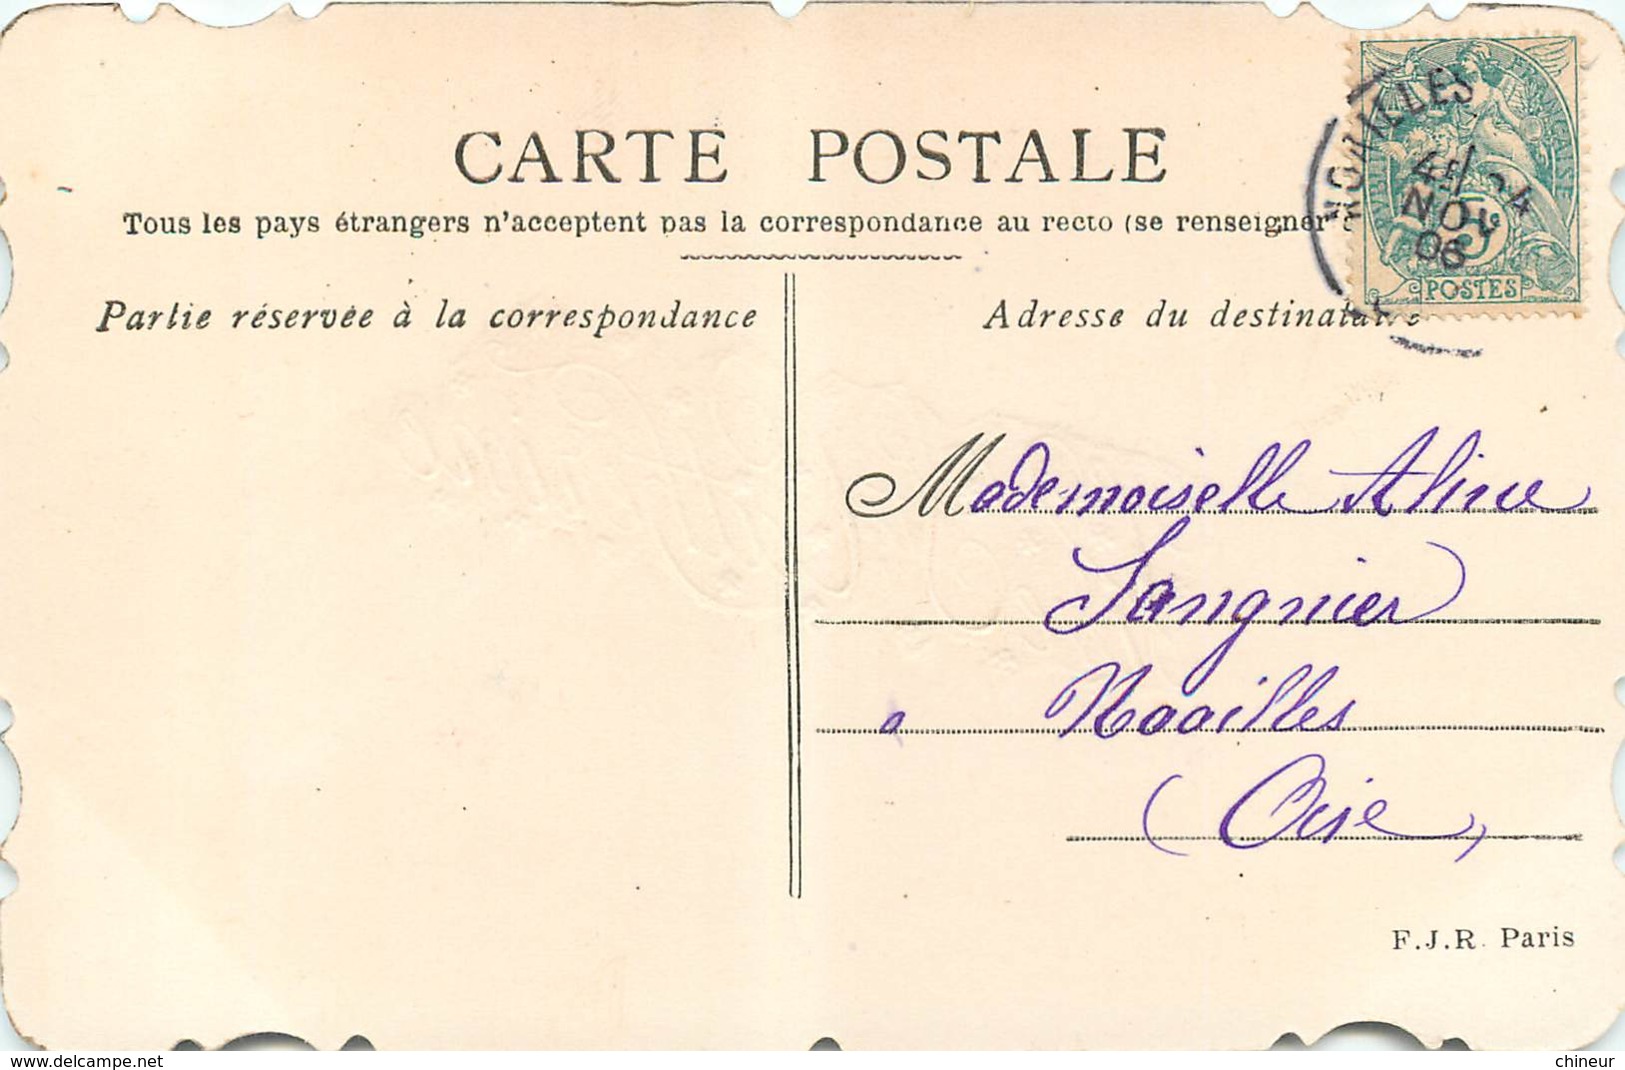 CARTE POSTALE
Tous les pays étrangers n'acceptent pas la correspondance au recto (se renseigner
Partie réservée à la correspondance
Adresse du destinataire
NOAILLES
24
NOV
06
RÉPUBLIQUE FRANÇAISE
5
POSTES
Mademoiselle Aline
Sangnier
à Noailles
(Oise)
F.J.R. Paris
www.delcampe.net
chineur